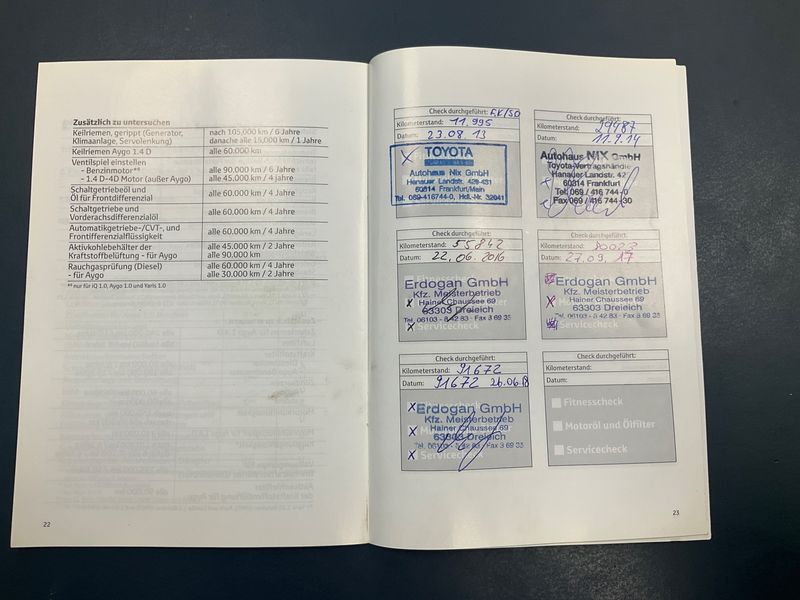 Zusätzlich zu untersuchen
Keilriemen, gerippt (Generator, nach 105.000 km / 6 Jahre
Klimaanlage, Servolenkung) danache alle 15,000 km / 1 Jahre
Keilriemen Aygo 1.4 D alle 60.000 km
Ventilspiel einstellen
- Benzinmotor** alle 90,000 km / 6 Jahre
- 1.4 D-4D Motor (außer Aygo) alle 45,000 km / 4 Jahre
Schaltgetriebeöl und
Öl für Frontdifferenzial alle 60,000 km / 4 Jahre
Schaltgetriebe und
Vorderachsdifferenzialöl alle 60.000 km / 4 Jahre
Automatikgetriebe-/CVT-, und
Frontdifferenzialflüssigkeit alle 60,000 km / 4 Jahre
Aktivkohlebehälter der alle 45.000 km / 2 Jahre
Kraftstoffbelüftung - für Aygo alle 90,000 km
Rauchgasprüfung (Diesel) alle 60.000 km / 4 Jahre
- für Aygo alle 30.000 km / 2 Jahre
** nur für iQ 1.0, Aygo 1.0 und Yaris 1.0
22
Check durchgeführt:
Kilometerstand: 11.995
Datum: 23.08 13
X TOYOTA
Autohaus Nix GmbH
Hanauer Landstr. 429-431
60314 Frankfurt/Main
Tel. 069-416744-0, Hdl.-Nr. 32041
Check durchgeführt:
Kilometerstand: 29487
Datum: 11.9.14
Autohaus NIX GmbH
Toyota-Vertragshändler
Hanauer Landstr. 42
60314 Frankfurt
Tel. 069 / 416 744-0
Fax 069 / 416 744-30
Check durchgeführt:
Kilometerstand: 55.842
Datum: 22.06.2016
Erdogan GmbH
Kfz. Meisterbetrieb
X Hainer Chaussee 69
63303 Dreieich
Tel. 06103 - 8 42 83 · Fax 3 69 35
X Servicecheck
Check durchgeführt:
Kilometerstand: 80023
Datum: 27.09.17
Erdogan GmbH
Kfz. Meisterbetrieb
X Hainer Chaussee 69
63303 Dreieich
Tel. 06103 - 8 42 83 · Fax 3 69 35
Servicecheck
Check durchgeführt:
Kilometerstand: 91672
Datum: 91672 26.06.18
X Erdogan GmbH
Kfz. Meisterbetrieb
X Hainer Chaussee 69
63303 Dreieich
Tel. 06103 - 8 42 83 · Fax 3 69 35
X Servicecheck
Check durchgeführt:
Kilometerstand:
Datum:
Fitnesscheck
Motoröl und Ölfilter
Servicecheck
23